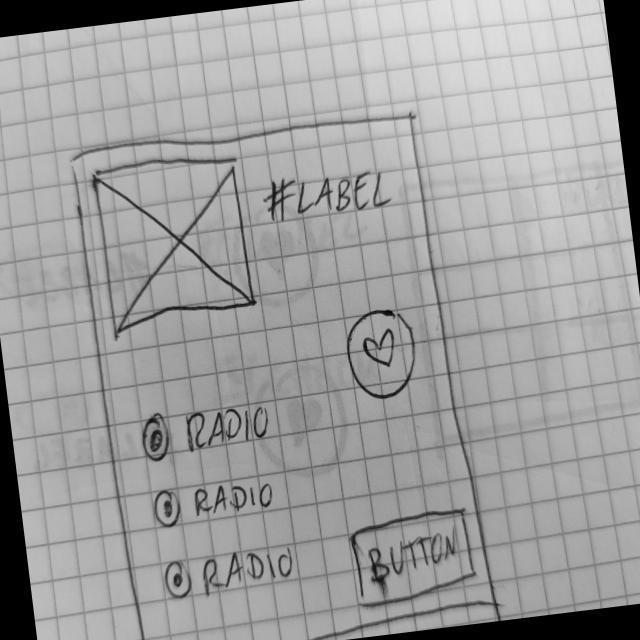 #LABEL
RADIO
RADIO
RADIO
BUTTON